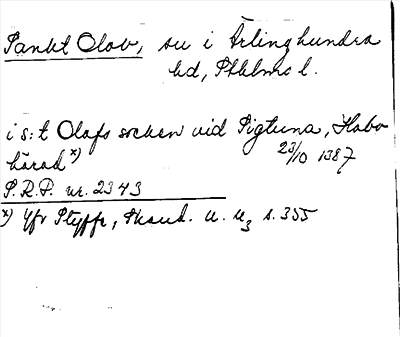 Sankt Olov, sn i Ärlinghundra
hd, Sthlms l.
i s:t Olafs socken vid Sigtuna, Habo
härad x) 23/10 1387
S.R.P. nr. 2343
x) Jfr Styffe, Skand. u. u3 s. 355